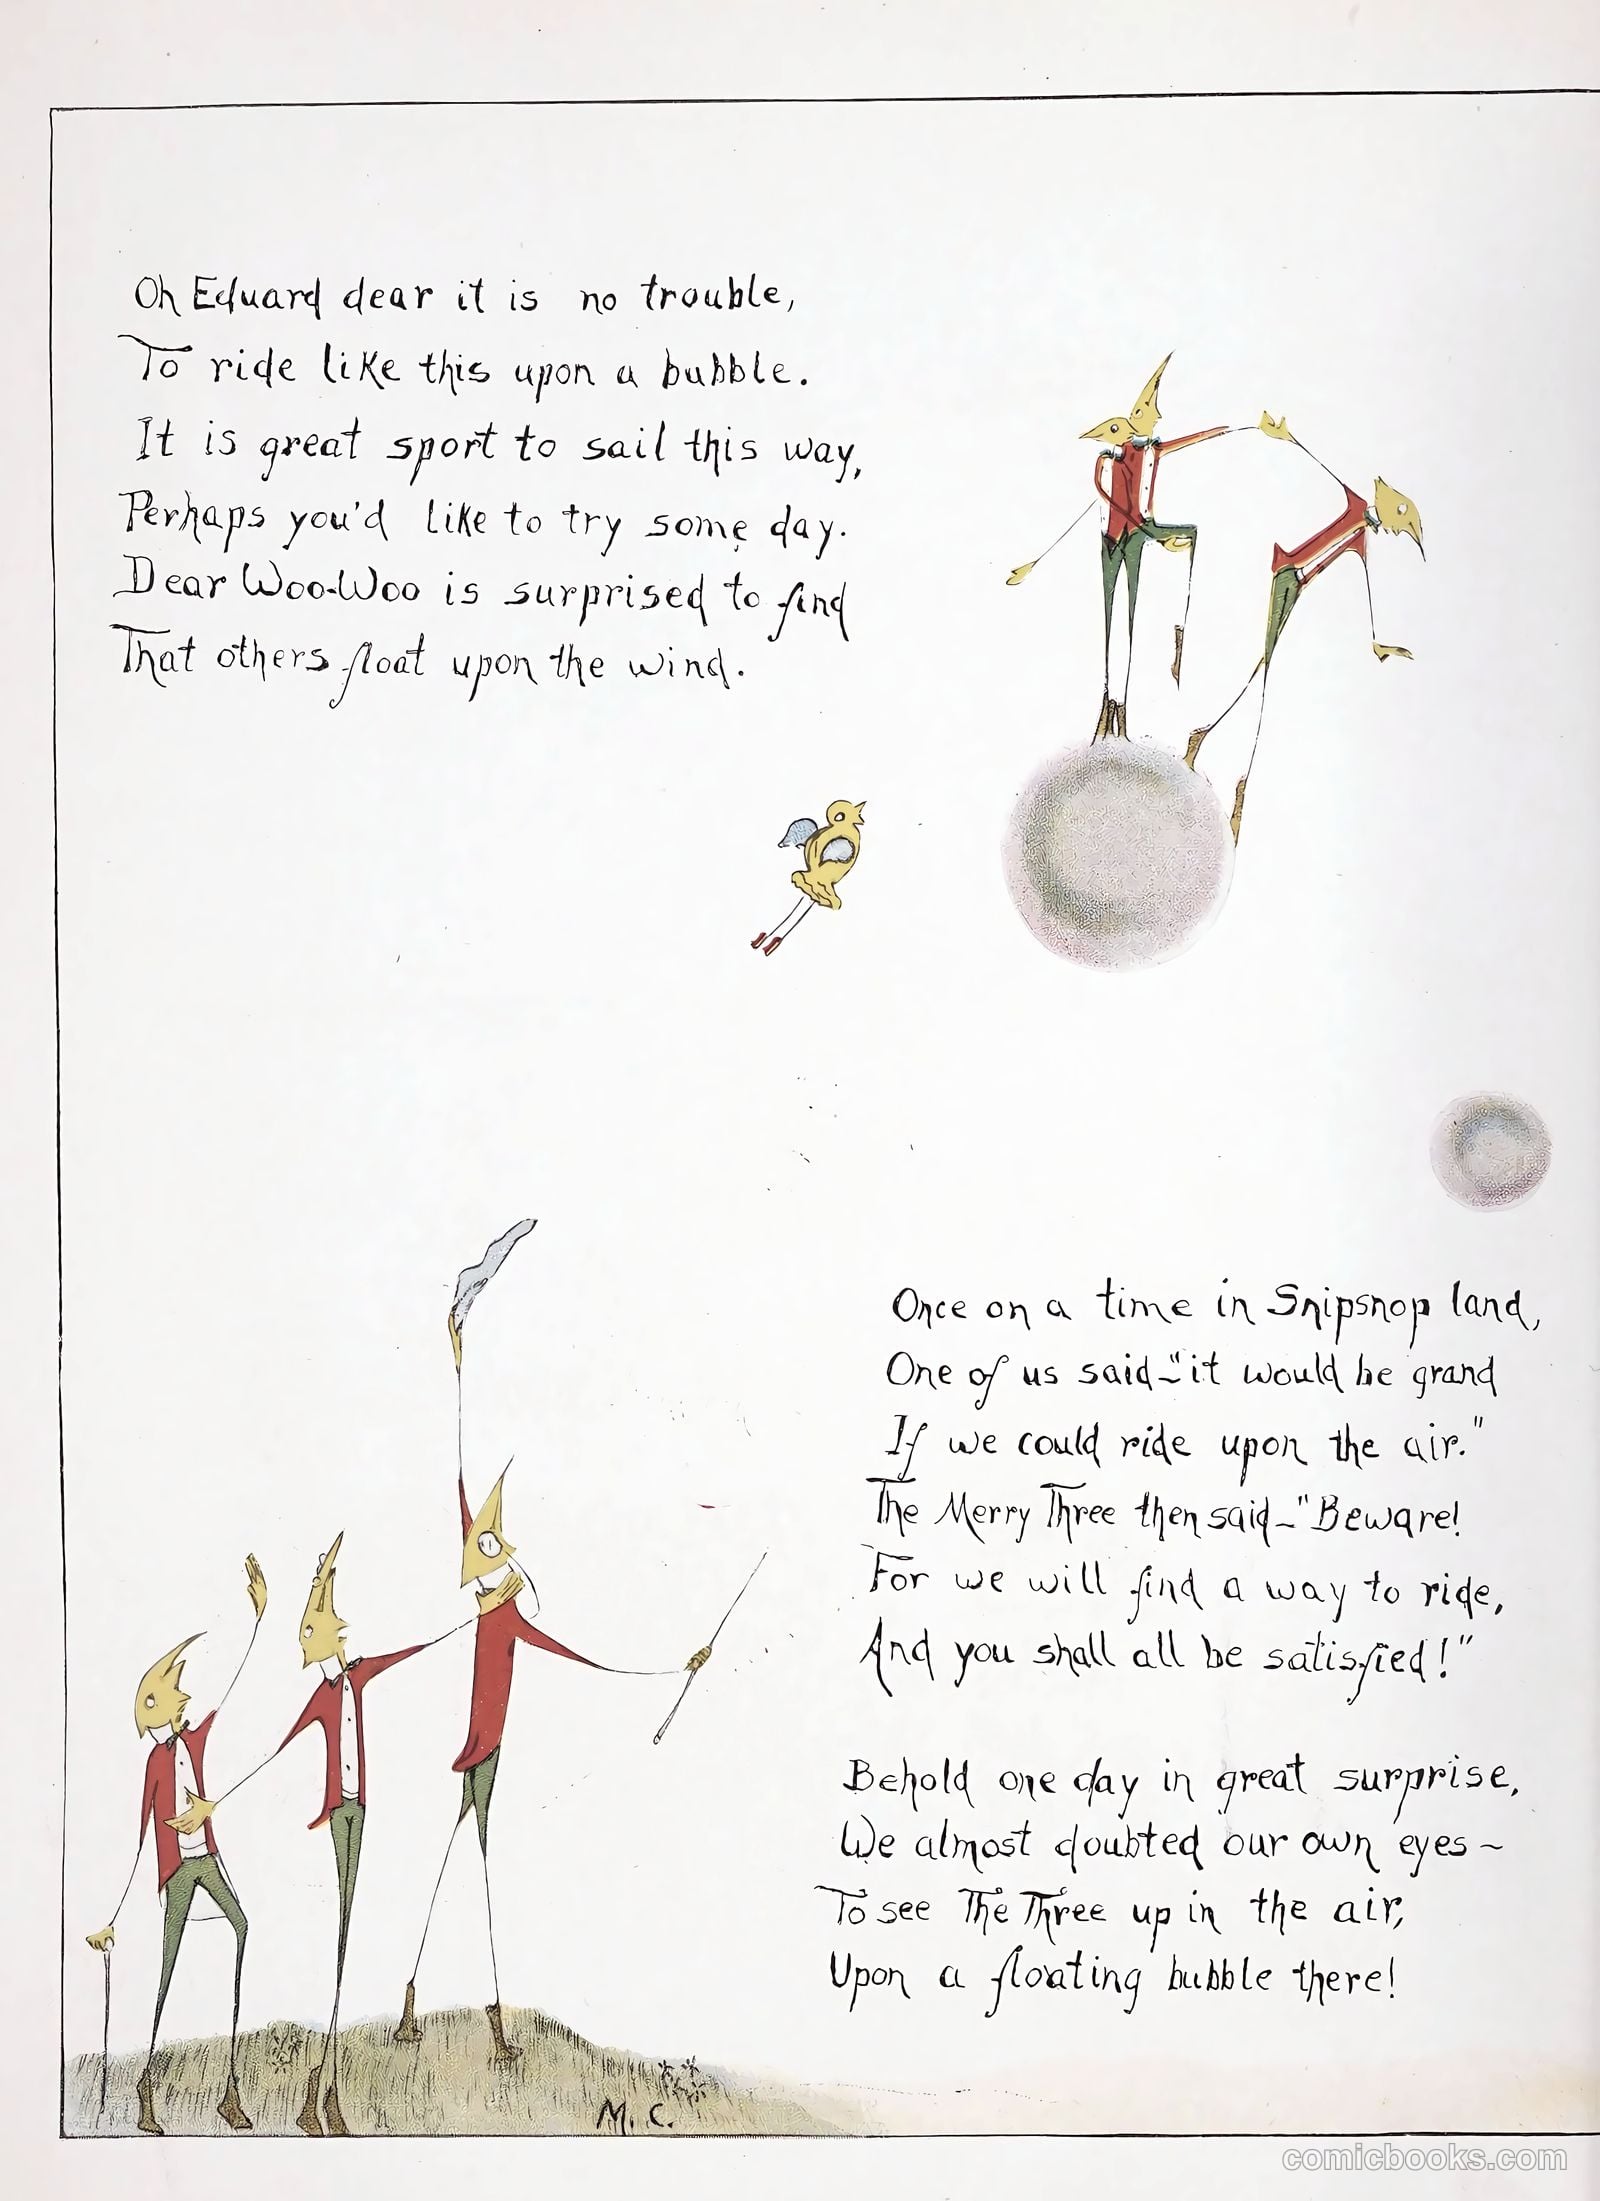 Oh Eduard dear it is no trouble,
To ride like this upon a bubble.
It is great sport to sail this way,
Perhaps you'd like to try some day.
Dear Woo-Woo is surprised to find
That others float upon the wind.
Once on a time in Snipsnop land,
One of us said-"it would be grand
If we could ride upon the air."
The Merry Three then said-"Beware!
For we will find a way to ride,
And you shall all be satisfied!"
Behold one day in great surprise,
We almost doubted our own eyes~
To see The Three up in the air,
Upon a floating bubble there!
M. C.
comicbooks.com